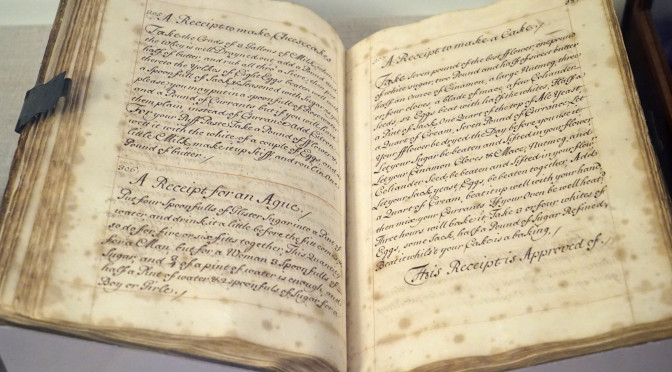 A Receipt to make Cheescakes
Take the Curds of 2 Gallons of Milk, when
the Whey is well Dreyned out, add a Pound
half of butter, and rub all thro' a Sieve, put
thereto the Yolks of Eight Eggs, beaten well
a Spoonfull of Sack, Seasoned with Sugar, and
please you may put in a Spoonfull of Rose
a Pound of Currants but if you will have
them plain, instead of Currants, add
For your Puff Paste, Take a Pound of flower
wett it with the white of a couple of Eggs and a
little Milk, make it up Stiff and roul in one
Pound of butter,/
A Receipt for an Ague,/
Put four Spoonfulls of Lister Sugar into a Pint of
water and drink it a little before the fitt comes
so do for five or six fitts together, This Quantity
for a Man, but for a Woman 3 Spoonfulls of
Sugar, and 3/4 of a pint of water is enough, and
half a Pint of water & 2 spoonfuls of Sugar for a
Boy or Girle,/
A Receipt to make a Cake,/
Take seven pound of the best flower, one pound
of white sugar, two Pound and half of sweet butter
half an ounce of Cinamon, a large Nutmeg, three
or four cloves, a blade of mace, a few Coliander
Seeds, 12 Eggs beat with half the whites, Half a
a Pint of Sack, One Quart of the top of Ale Yeast,
a Quart of Cream, Seven Pound of Currants, Let
Your flower be dryed the Day before you use it
Let your Sugar be beaten and Sifted in your flower
Let your Cinamon Cloves & Mace, Nutmeg, and
Coliander Seed, be beaten and Sifted in your flower
Let your Sack, yeast, Eggs, be beaten together, Add
a Quart of Cream, beat it up well with your hand,
then mix your Currants, If your Oven be well heat
Three hours will bake it, Take 2 or four, whites of
Eggs, some Sack, half a Pound of Sugar Refined,
Beat it whilst your Cake is a baking,/
This Receipt is Approved of,/